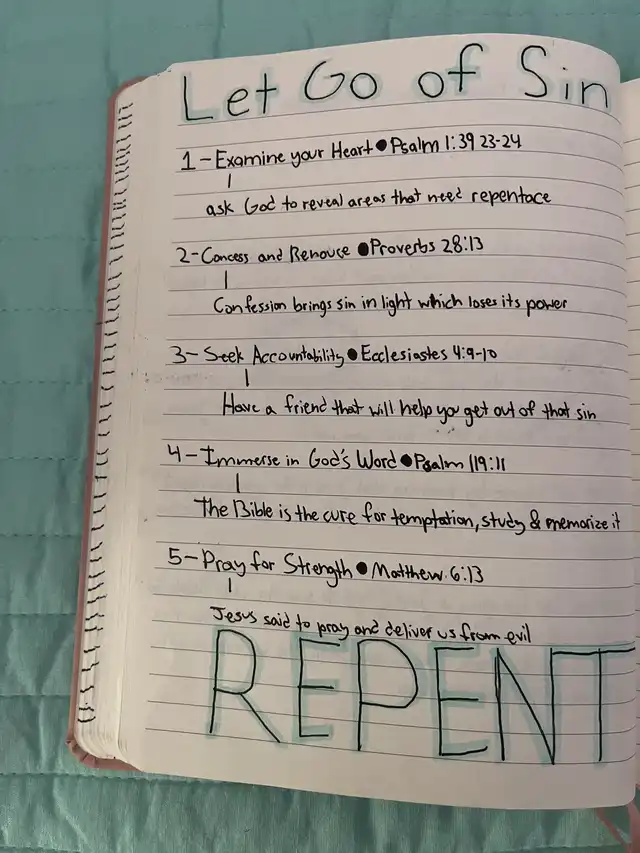 Let Go of Sin
1 - Examine your Heart ● Psalm 1:39 23-24
ask God to reveal areas that need repentace
2 - Concess and Renouce ● Proverbs 28:13
Confession brings sin in light which loses its power
3 - Seek Accountability ● Ecclesiastes 4:9-10
Have a friend that will help you get out of that sin
4 - Immerse in God's Word ● Psalm 119:11
The Bible is the cure for temptation, study & memorize it
5 - Pray for Strength ● Matthew 6:13
Jesus said to pray and deliver us from evil
REPENT